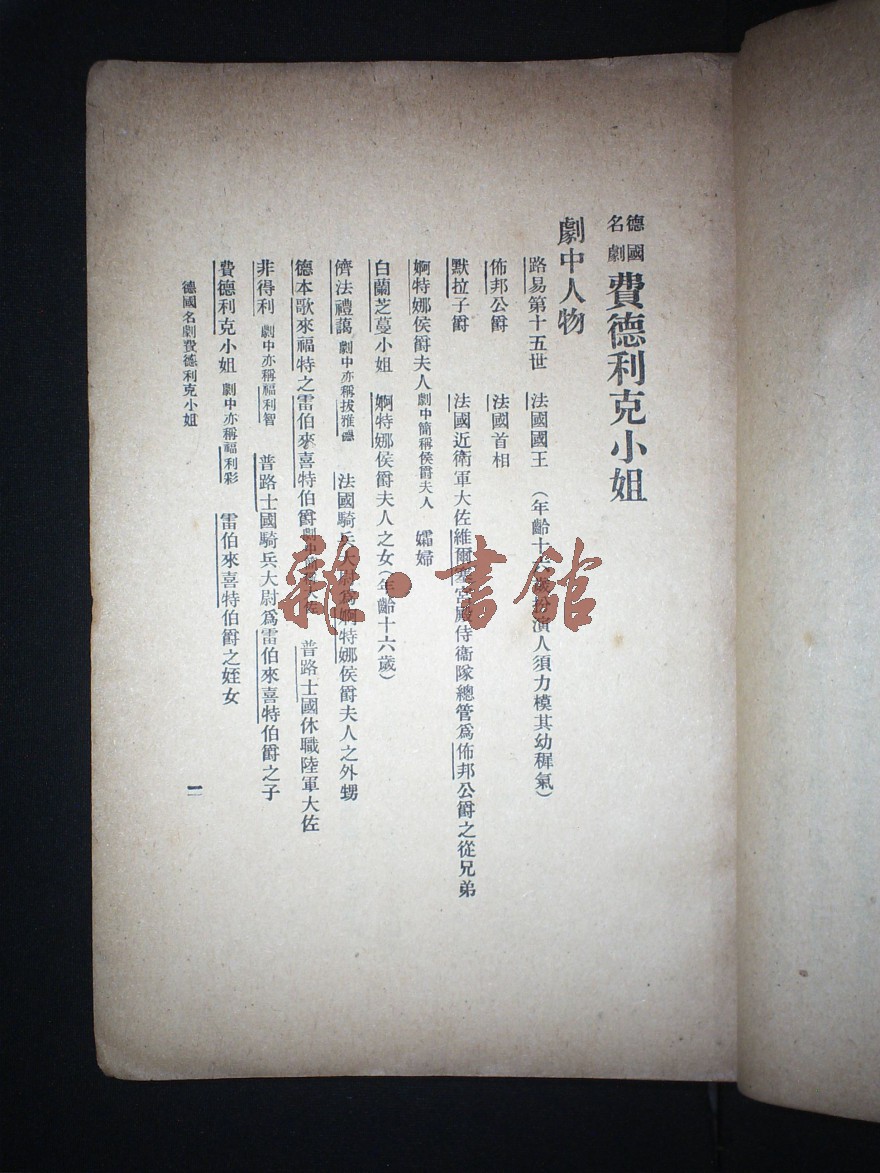 德國名劇 費德利克小姐
劇中人物
路易第十五世 法國國王 (年齡十六歲扮演人須力模其幼穉氣)
佈邦公爵 法國首相
默拉子爵 法國近衛軍大佐維爾塞宮殿侍衛隊總管爲佈邦公爵之從兄弟
婀特娜侯爵夫人 劇中簡稱侯爵夫人 孀婦
白蘭芝蔓小姐 婀特娜侯爵夫人之女(年齡十六歲)
儕法禮藹 劇中亦稱拔雅 法國騎兵大尉爲婀特娜侯爵夫人之外甥
德本歌來福特之雷伯來喜特伯爵 大佐 普路士國休職陸軍大佐
非得利 劇中亦稱福利智 普路士國騎兵大尉爲雷伯來喜特伯爵之子
費德利克小姐 劇中亦稱福利彩 雷伯來喜特伯爵之姪女
德國名劇費德利克小姐
一
雜·書館